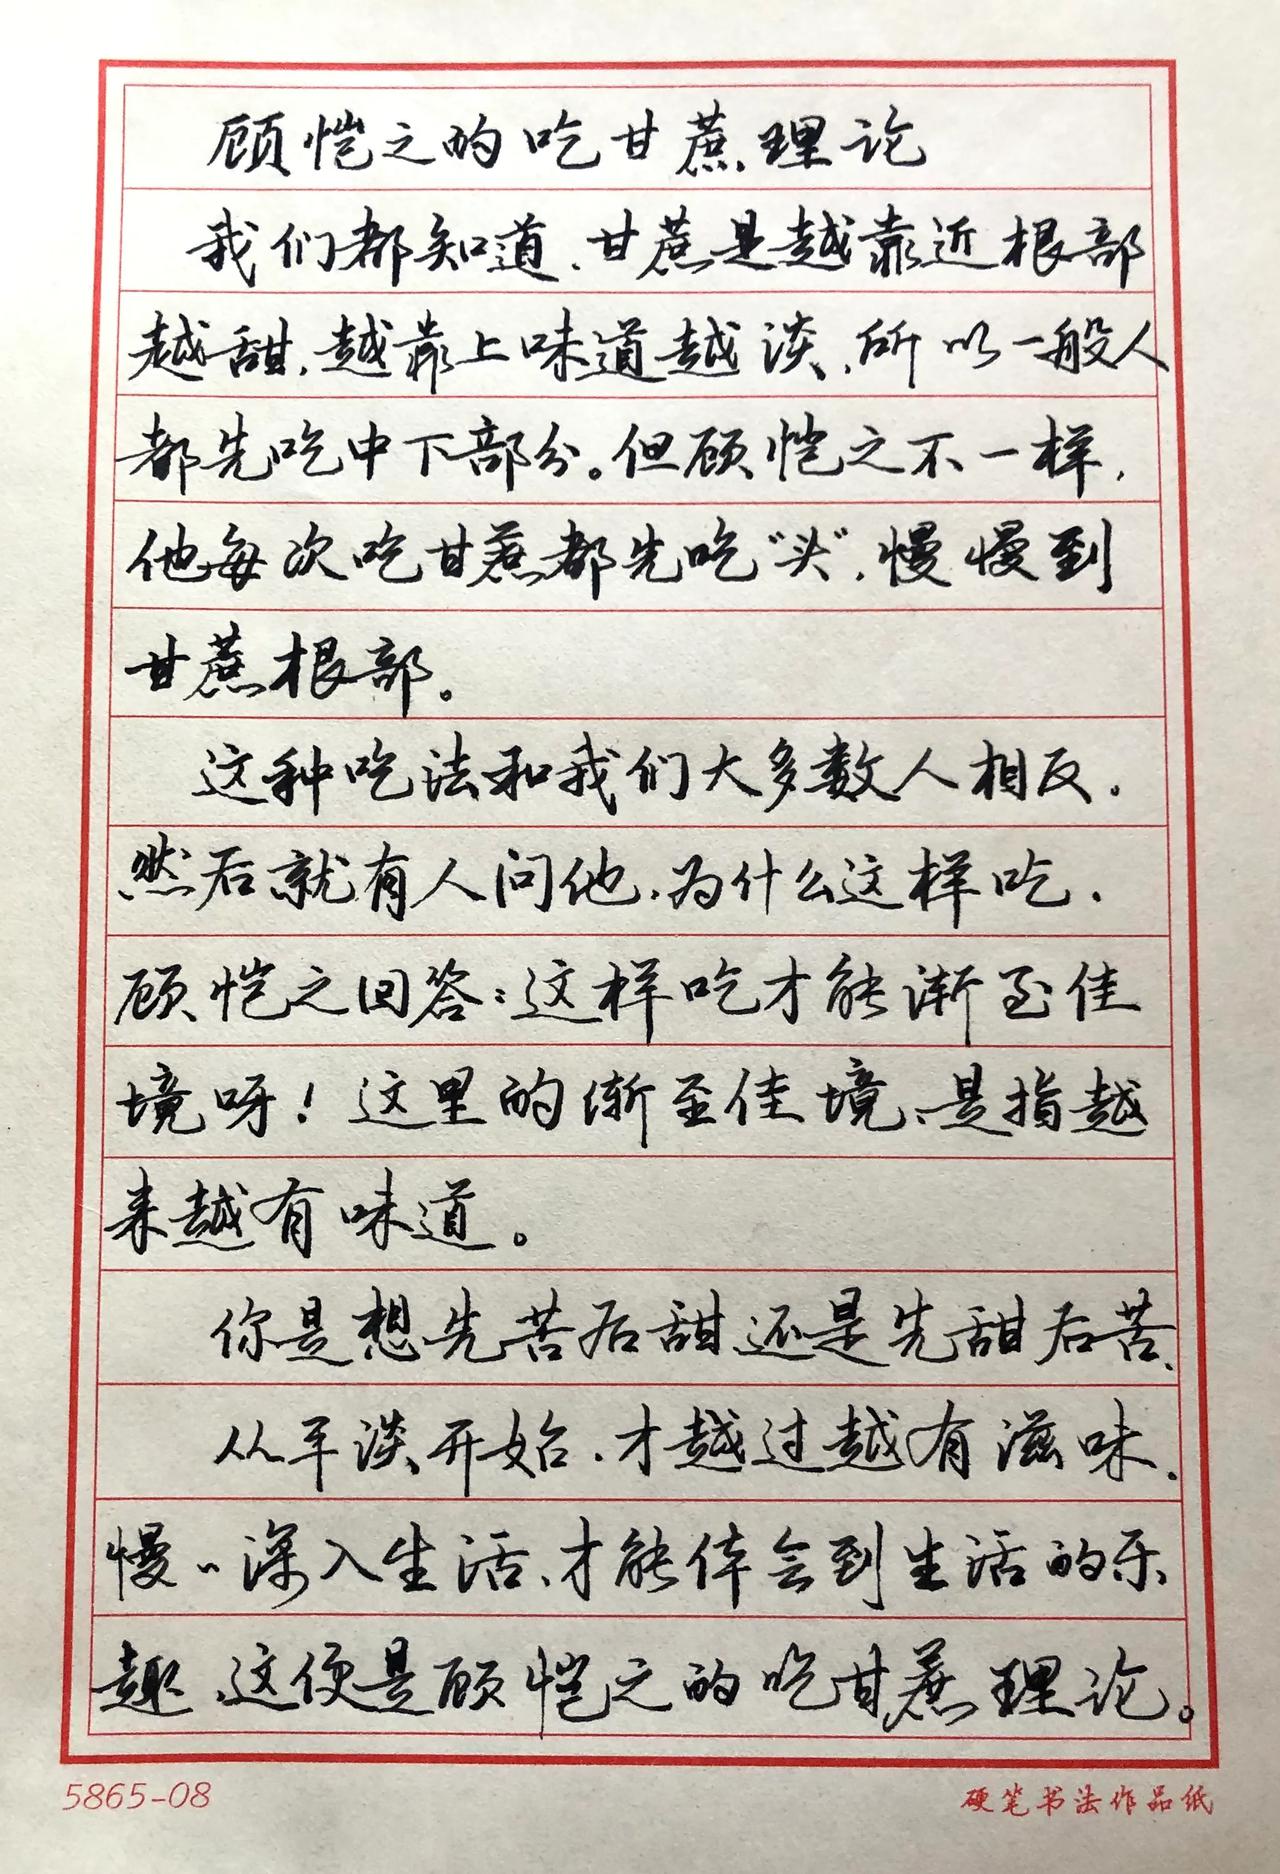 顾恺之的吃甘蔗理论
我们都知道、甘蔗是越靠近根部
越甜,越靠上味道越淡,所以一般人
都先吃中下部分。但顾恺之不一样,
他每次吃甘蔗都先吃“头”,慢慢到
甘蔗根部。
这种吃法和我们大多数人相反.
然后就有人问他,为什么这样吃.
顾恺之回答:这样吃才能渐至佳
境呀!这里的渐至佳境、是指越
来越有味道。
你是想先苦后甜还是先甜后苦、
从平淡开始、才越过越有滋味.
慢〻深入生活、才能体会到生活的乐
趣、这便是顾恺之的吃甘蔗理论。
5865-08
硬笔书法作品纸